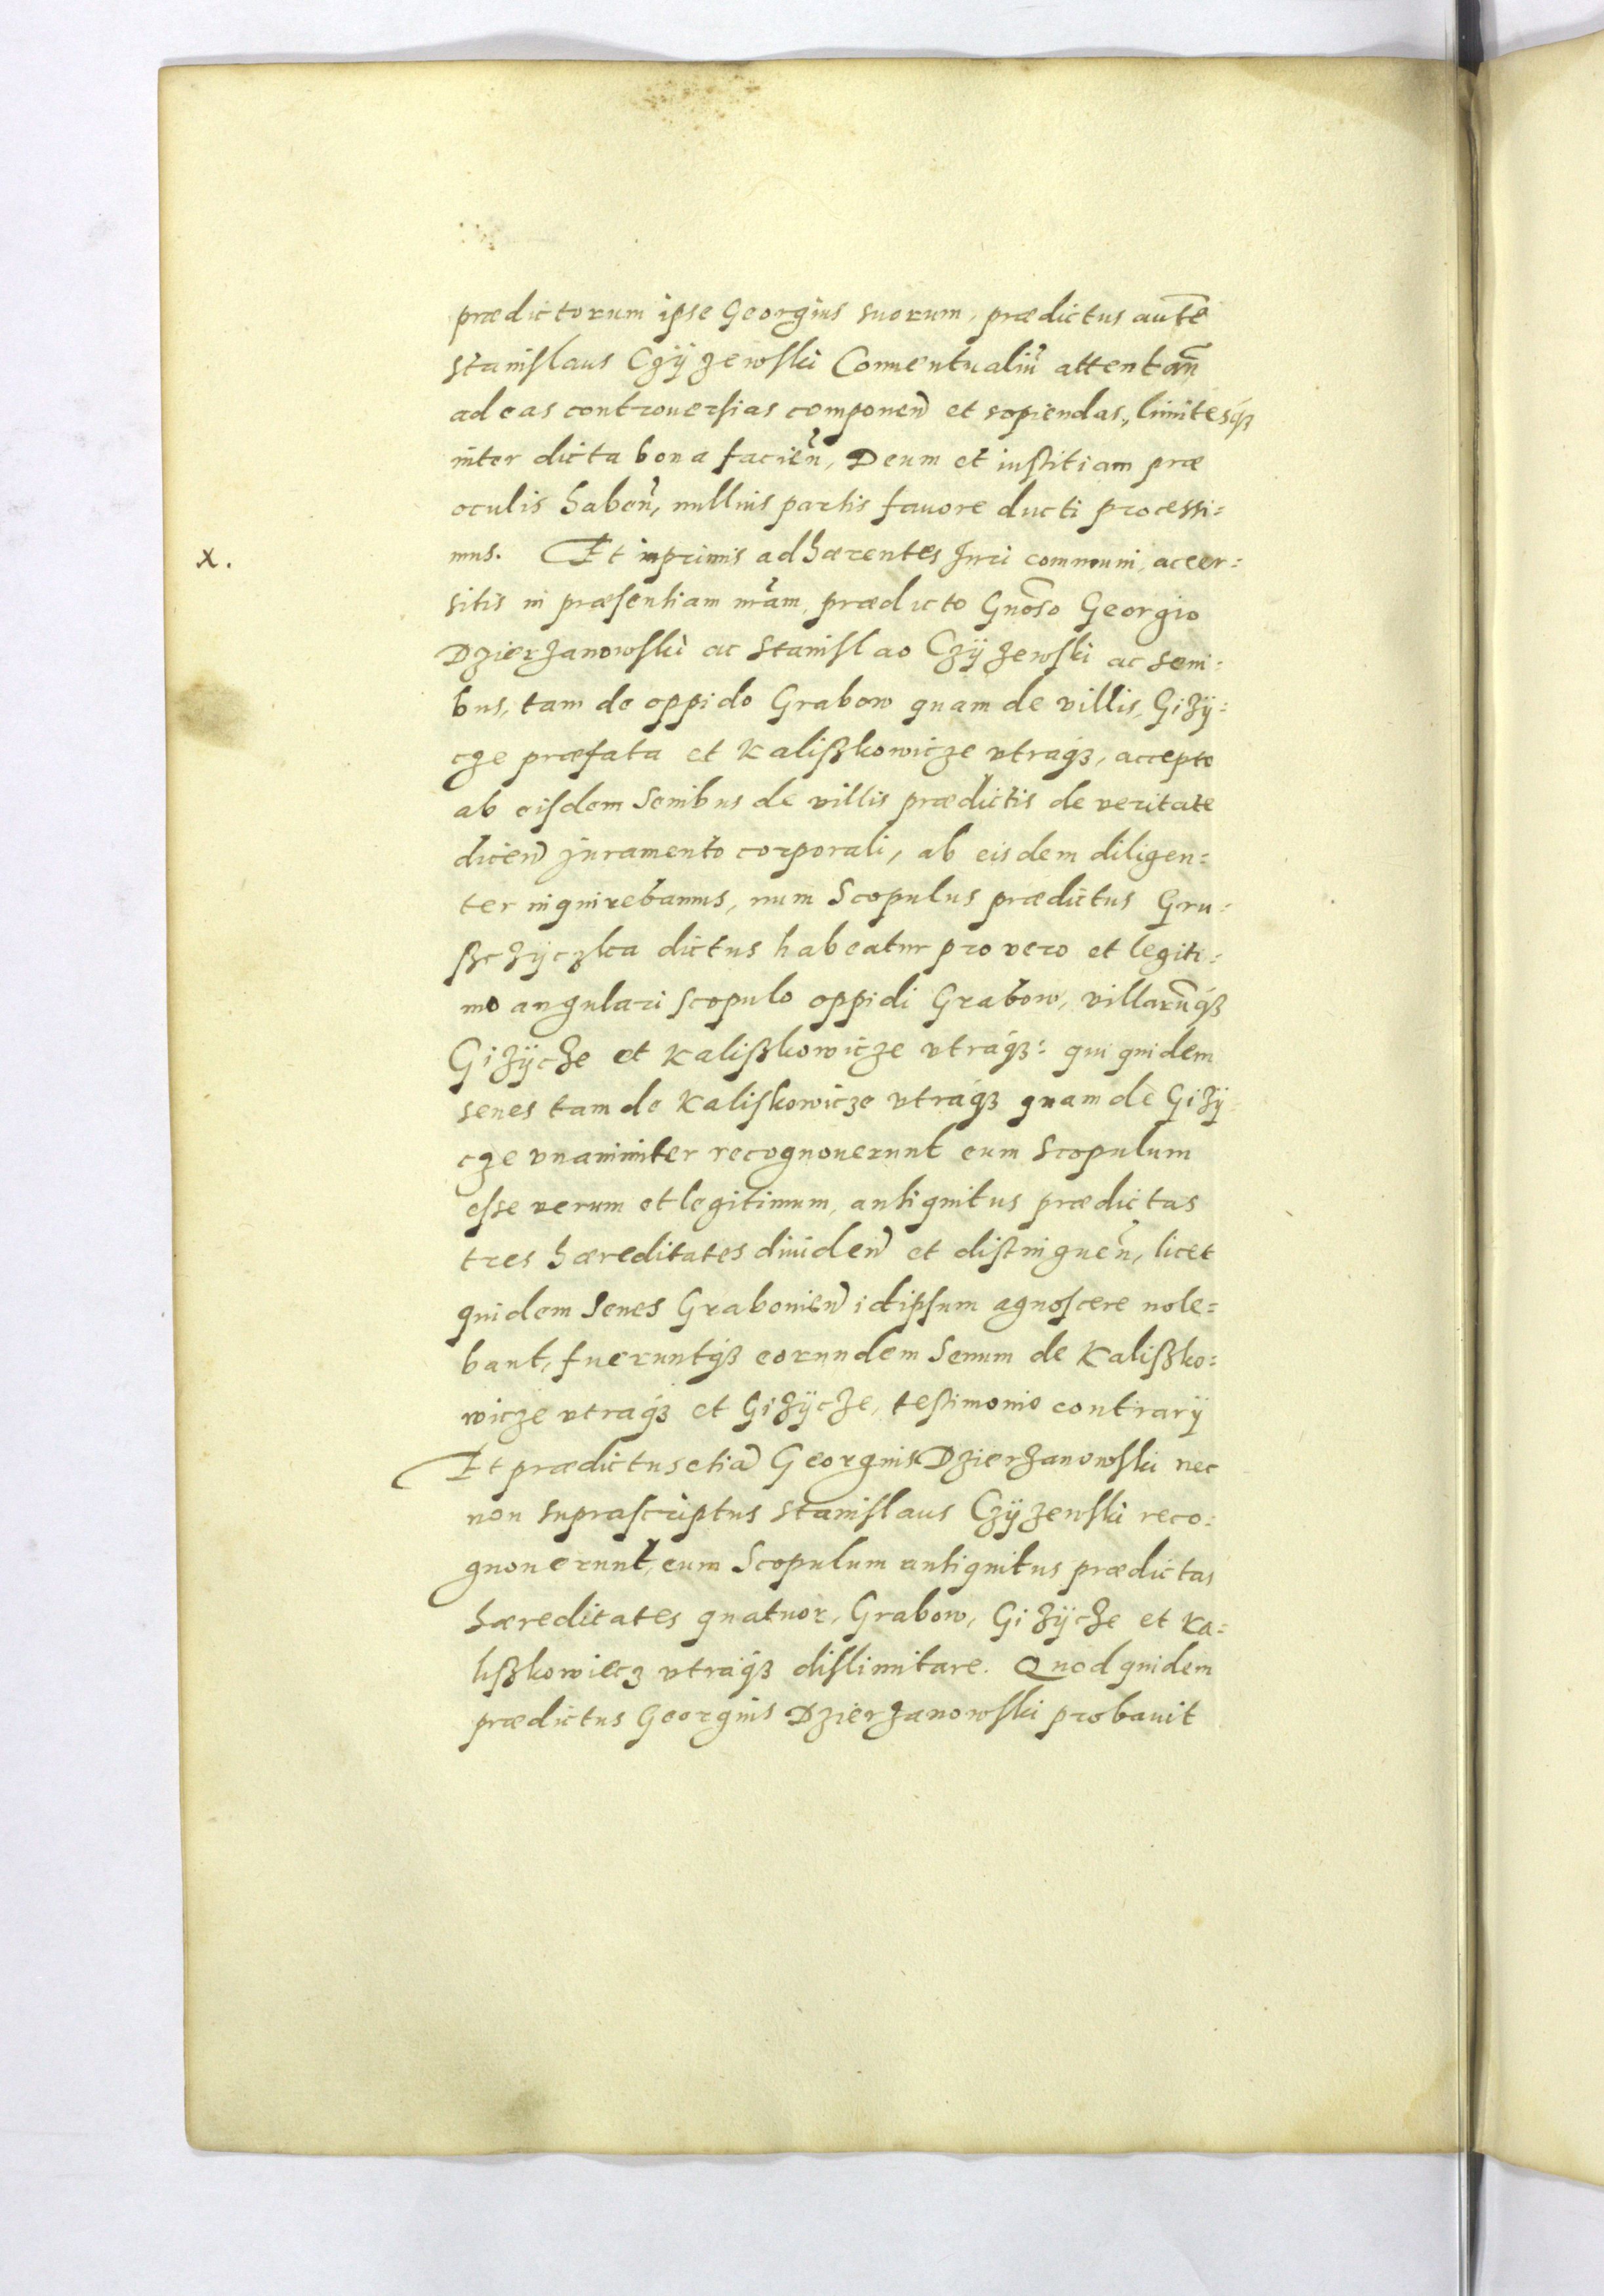 prædictorum ipse Georgius suorum, prædictus autē
Stanislaus Czÿzewski Conuentualiū attentañ
ad eas controuersias componeñ et sopiendas, limitesq₃
inter dicta bona facieñ, Deum et iustitiam præ
oculis habeñ, nullius partis fauore ducti processi=
x. mus. Et inprimis adhærentes Juri communi, accer=
sitis in præsentiam nr̄am, prædicto Gnōso Georgio
Dzierzanowski ac Stanislao Czÿzewski ac seni=
bus, tam de oppido Grabow quam de villis, Gizÿ=
cze præfata et Kalißkowicze vtraq₃, accepto
ab eisdem Senibus de villis prædictis de veritate
diceñ juramento corporali, ab eisdem diligen=
ter inquirebamus, num Scopulus prædictus Gru=
ßczÿczka dictus habeatur pro vero et legiti=
mo angulari scopulo oppidi Grabow, villarūq₃
Gizÿcze et Kalißkowicze vtraq₃: qui quidem
senes tam de Kaliskowicze vtraq₃ quam de Gizÿ=
cze vnanimiter recognouerunt eum Scopulum
esse verum et legitimum, antiquitus prædictas
tres hæreditates diuideñ et distingueñ, licet
quidem Senes Grabouieñ idipsum agnoscere nole=
bant, fueruntq₃ eorundem Senum de Kalißko=
wicze vtraq₃ et Gizÿcze, testimonio contrarÿ
Et prædictus etiā Georgius Dzierzanowski nec
non suprascriptus Stanislaus Czÿzewski reco=
gnouerunt, eum Scopulum antiquitus prædictas
hæreditates quatuor, Grabow, Gizÿcze et Ka=
lißkowiecz vtraq₃ dislimitare. Quod quidem
prædictus Georgius Dzierzanowski probauit